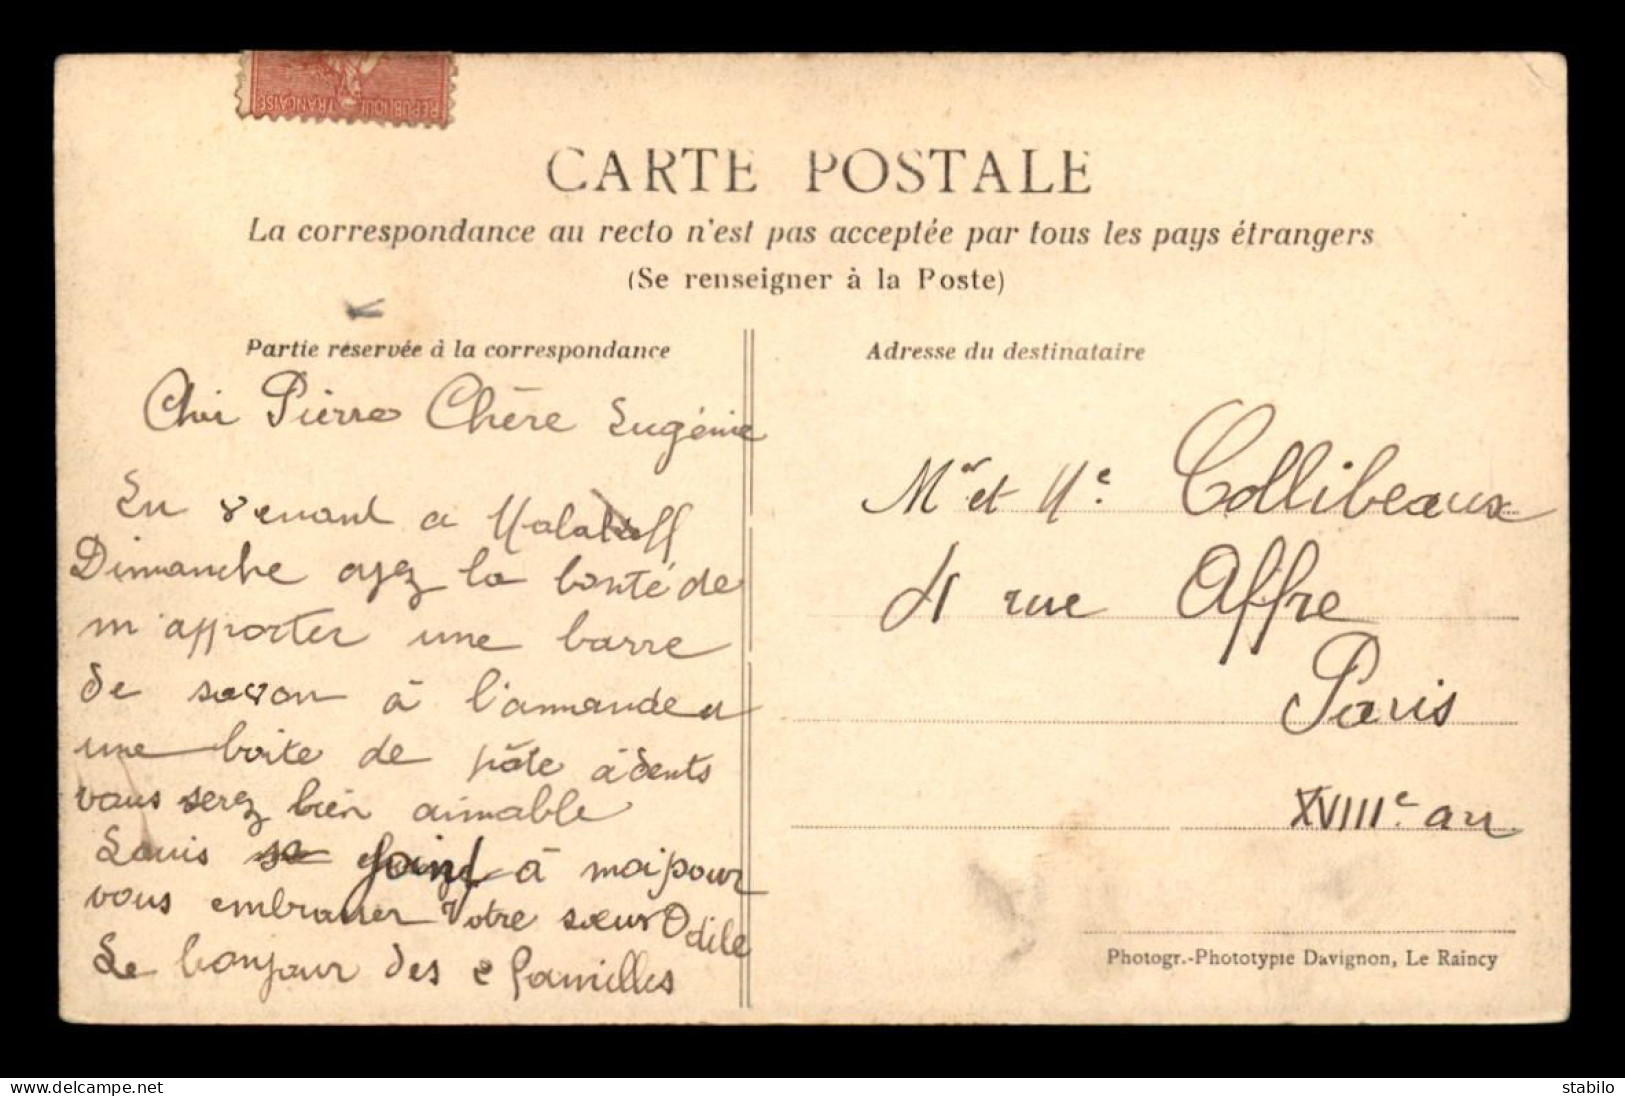 REPUBLIQUE FRANÇAISE
CARTE POSTALE
La correspondance au recto n'est pas acceptée par tous les pays étrangers
(Se renseigner à la Poste)
Partie réservée à la correspondance
Pierre Chère Eugénie
En venant a Malakoff
Dimanche ayez la bonté de
m'apporter une barre
de savon à l'amande et
une boite de pâte à dents
vous serez bien aimable
Louis se joint à moi pour
vous embrasser Votre sœur Odile
Le bonjour des 2 familles
Adresse du destinataire
Mr et Me Collibeaux
rue Affre
Paris
XVIIIe arr
Photogr.-Phototypie Davignon, Le Raincy
www.delcampe.net
stabilo